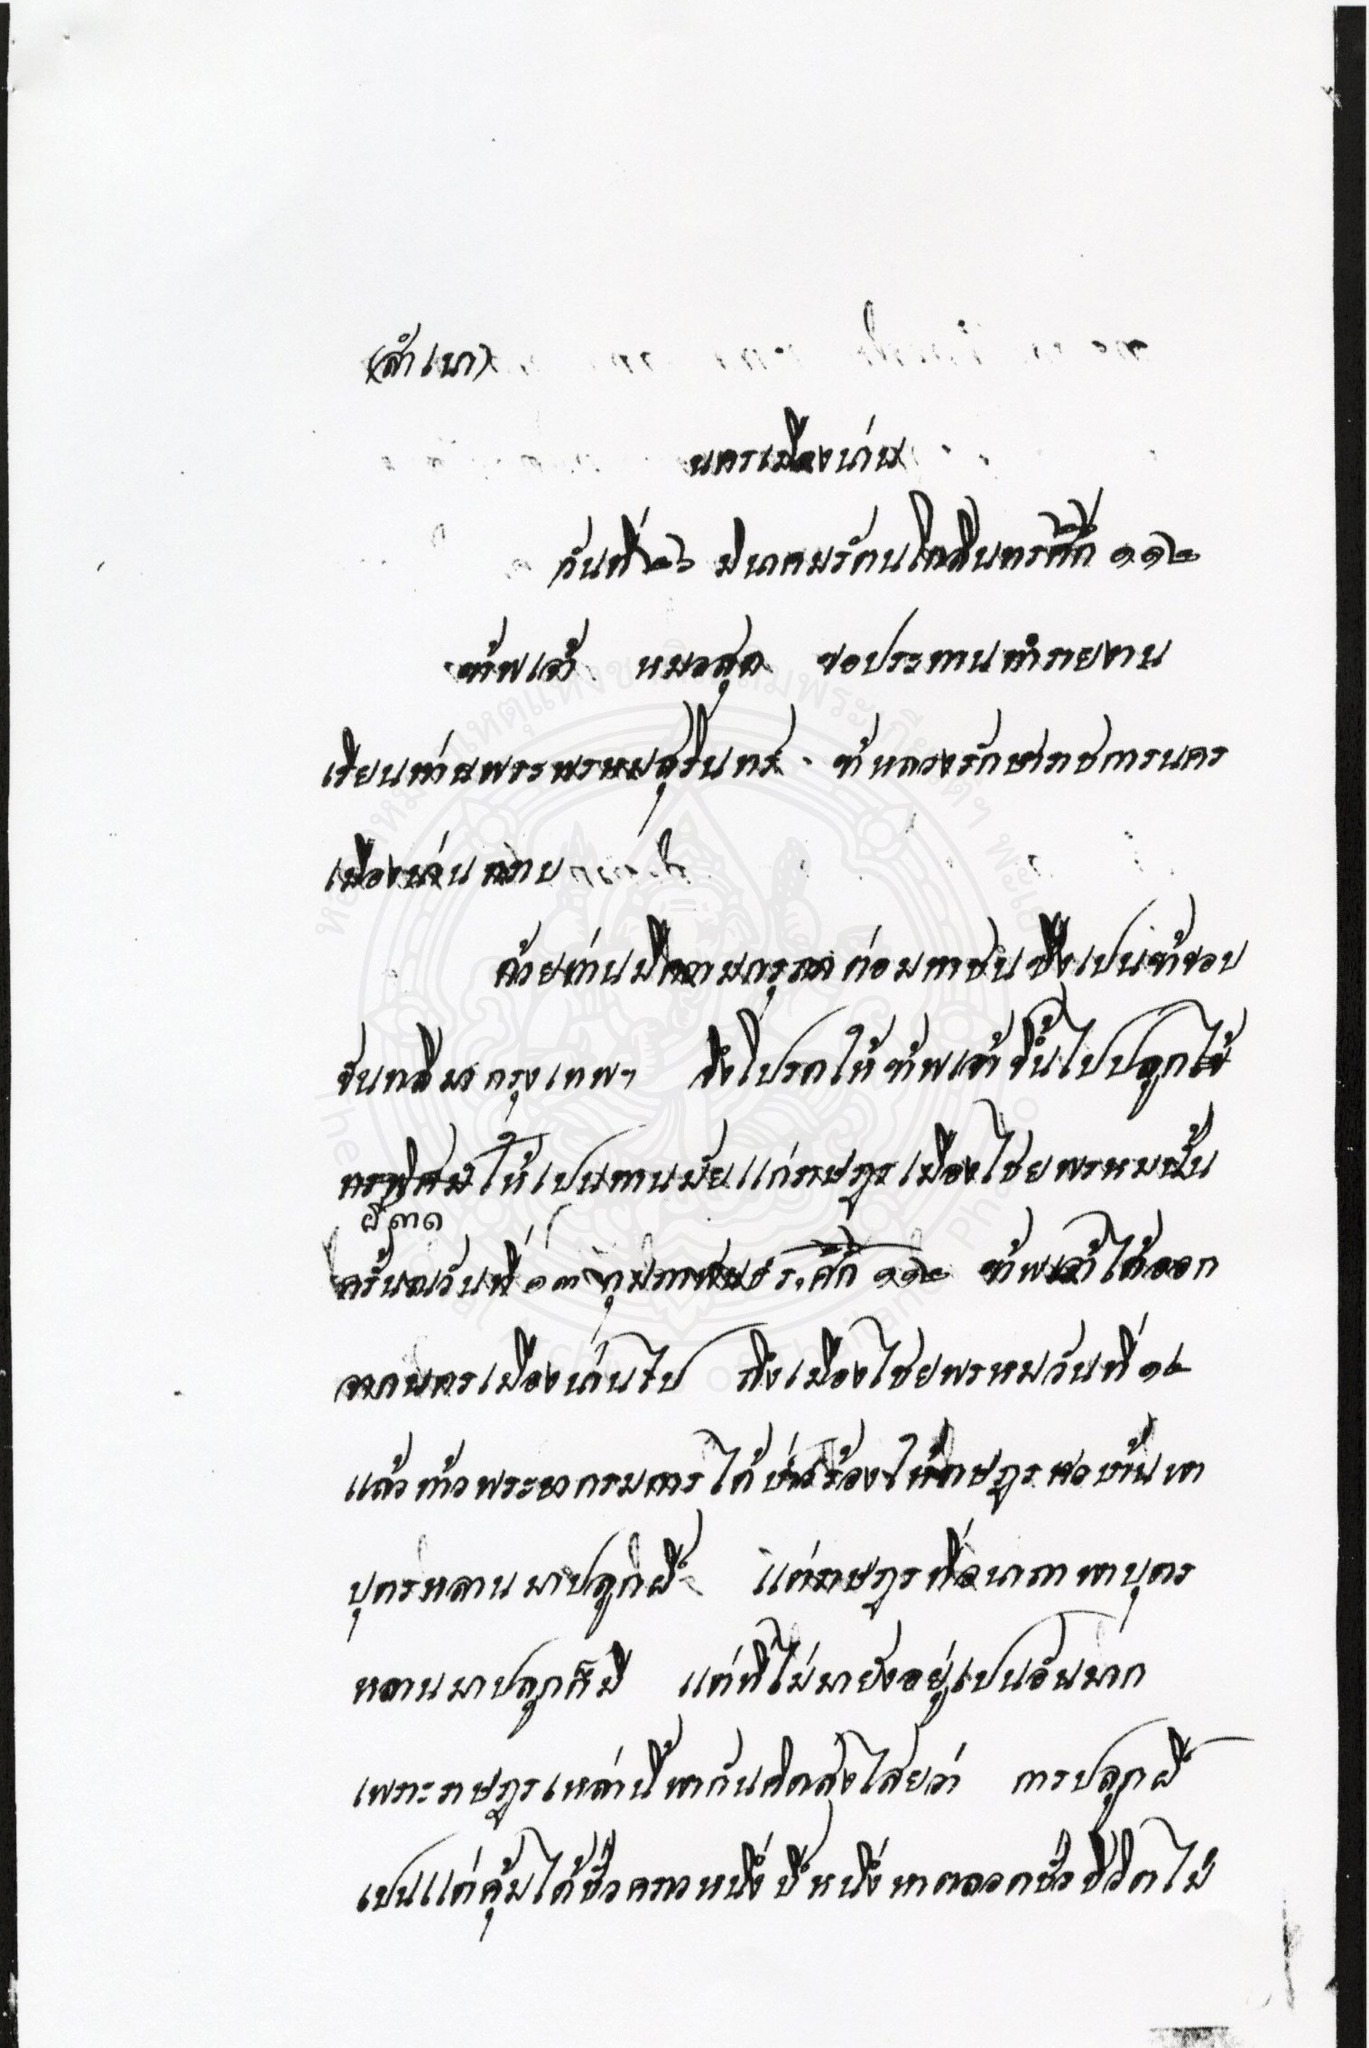 (สำเนา)
นครเมืองน่าน
วันที่ ๒๖ มีนาคมรัตนโกสินทรศก ๑๑๒
ข้าพเจ้า หมอสุด ขอประทานทำรายงาน
เรียนท่านพระพรหมสุรินทร์ ข้าหลวงรักษาราชการนคร
เมืองน่าน ทราบ
ด้วยท่านมีความกรุณาต่อมหาชนซึ่งเปนข้าขอบ
ขันทสีมากรุงเทพฯ จึงโปรดให้ข้าพเจ้าขึ้นไปปลูกไข้
ทรพิศม์ให้เปนทานมัยแก่ราษฎรเมืองไชยพรหมนั้น
ฝีดาด
ครั้นณวันที่ ๑๓ กุมภาพันธ์ ร,ศก ๑๑๒ ข้าพเจ้าได้ออก
จากนครเมืองน่านไป ถึงเมืองไชยพรหมวันที่
แล้วท้าวพระยากรมการได้ป่าวร้องให้ราษฎรชาวบ้านพา
บุตรหลานมาปลูกฝี แต่ราษฎรที่
พาบุตร
หลานมาปลูกก็มี แต่ที่ไม่มายังอยู่เปนอันมาก
เพราะราษฎรเหล่านี้พากันคิดสงไสยว่า การปลูกฝี
เปนแต่คุ้มได้ชั่วคราวหนึ่งปีหนึ่ง หาตลอดชั่วชีวิตไม่